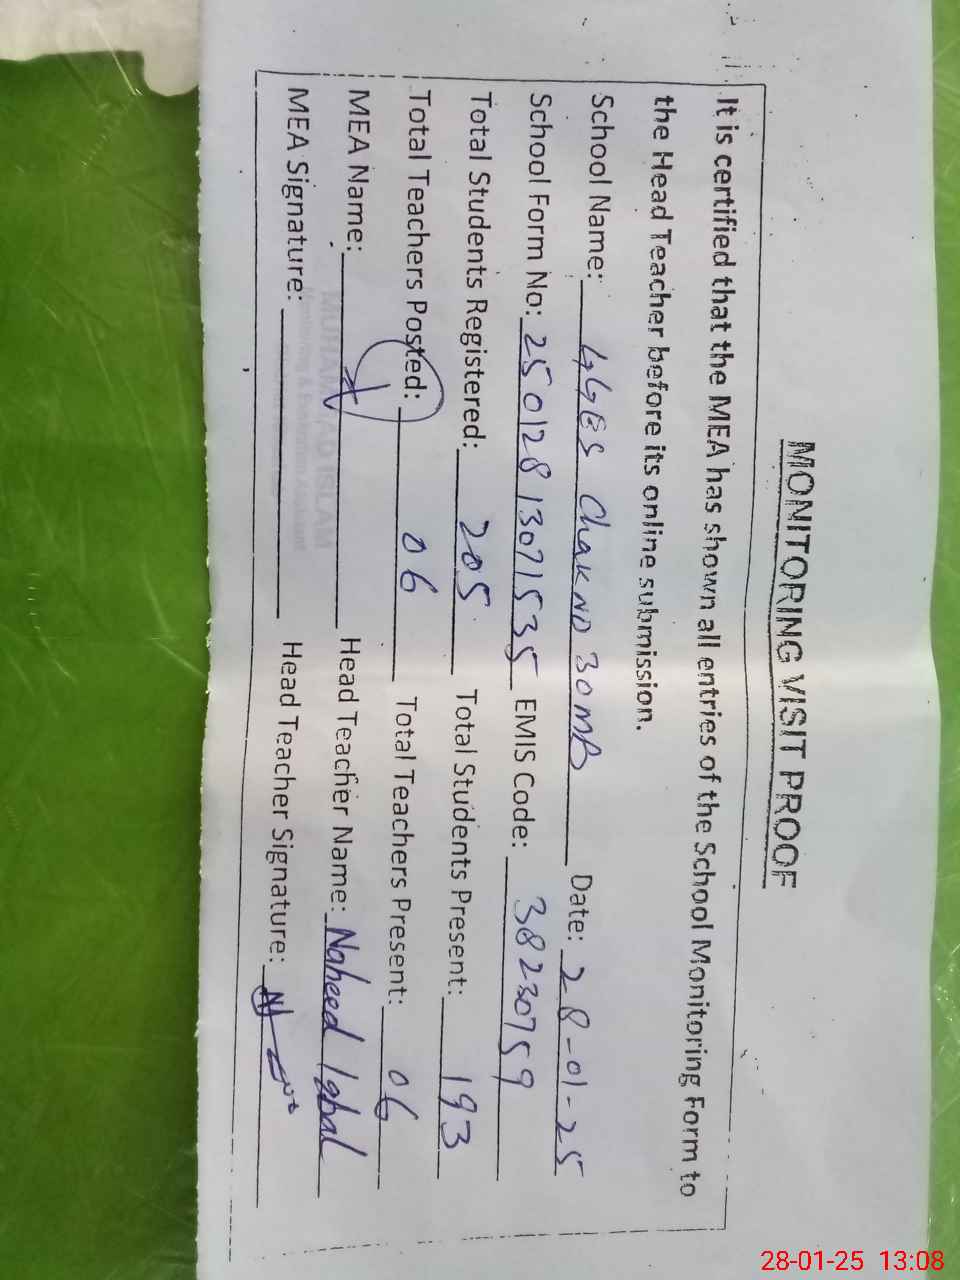 MONITORING VISIT PROOF
It is certified that the MEA has shown all entries of the School Monitoring Form to
the Head Teacher before its online submission.
School Name: GGES Chak No 30 MB Date: 28-01-25
School Form No: 250128 13071535 EMIS Code: 38230759
Total Students Registered: 205 Total Students Present: 193
Total Teachers Posted: 06 Total Teachers Present: 06
MEA Name: Head Teacher Name: Naheed Iqbal
MEA Signature: Head Teacher Signature:
MUHAMMAD ISLAM
Monitoring & Evaluation Assistant
28-01-25 13:08